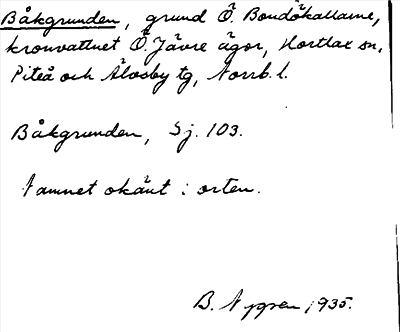 Båkgrunden, grund Ö. Bondökallarne,
kronvattnet Ö. Jävre ägor, Hortlax sn,
Piteå och Älvsby tg, Norrb. l.
Båkgrunden, Sj. 103.
Namnet okänt i orten.
B. Nygren 1935.